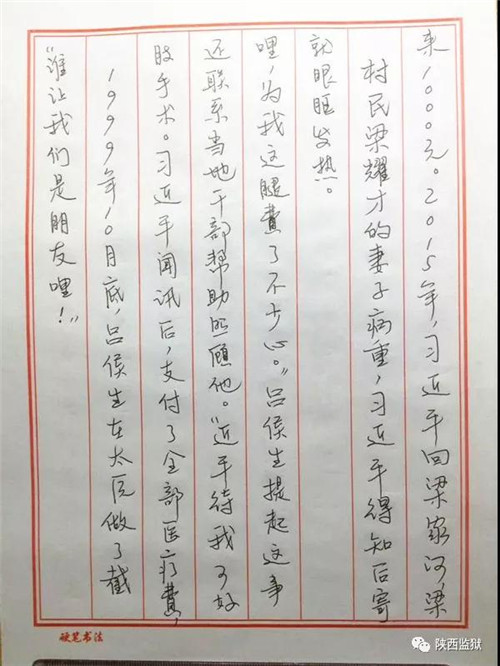 “谁让我们是朋友哩！”
1999年10月底，吕侯生在太原做了截
肢手术。习近平闻讯后，支付了全部医疗费，
还联系当地干部帮助照顾他。“近平待我可好
哩，为我这腿费了不少心。”吕侯生提起这事
就眼眶发热。
村民梁耀才的妻子病重，习近平得知后寄
来1000元。2015年，习近平回梁家河，梁
硬笔书法
陕西监狱